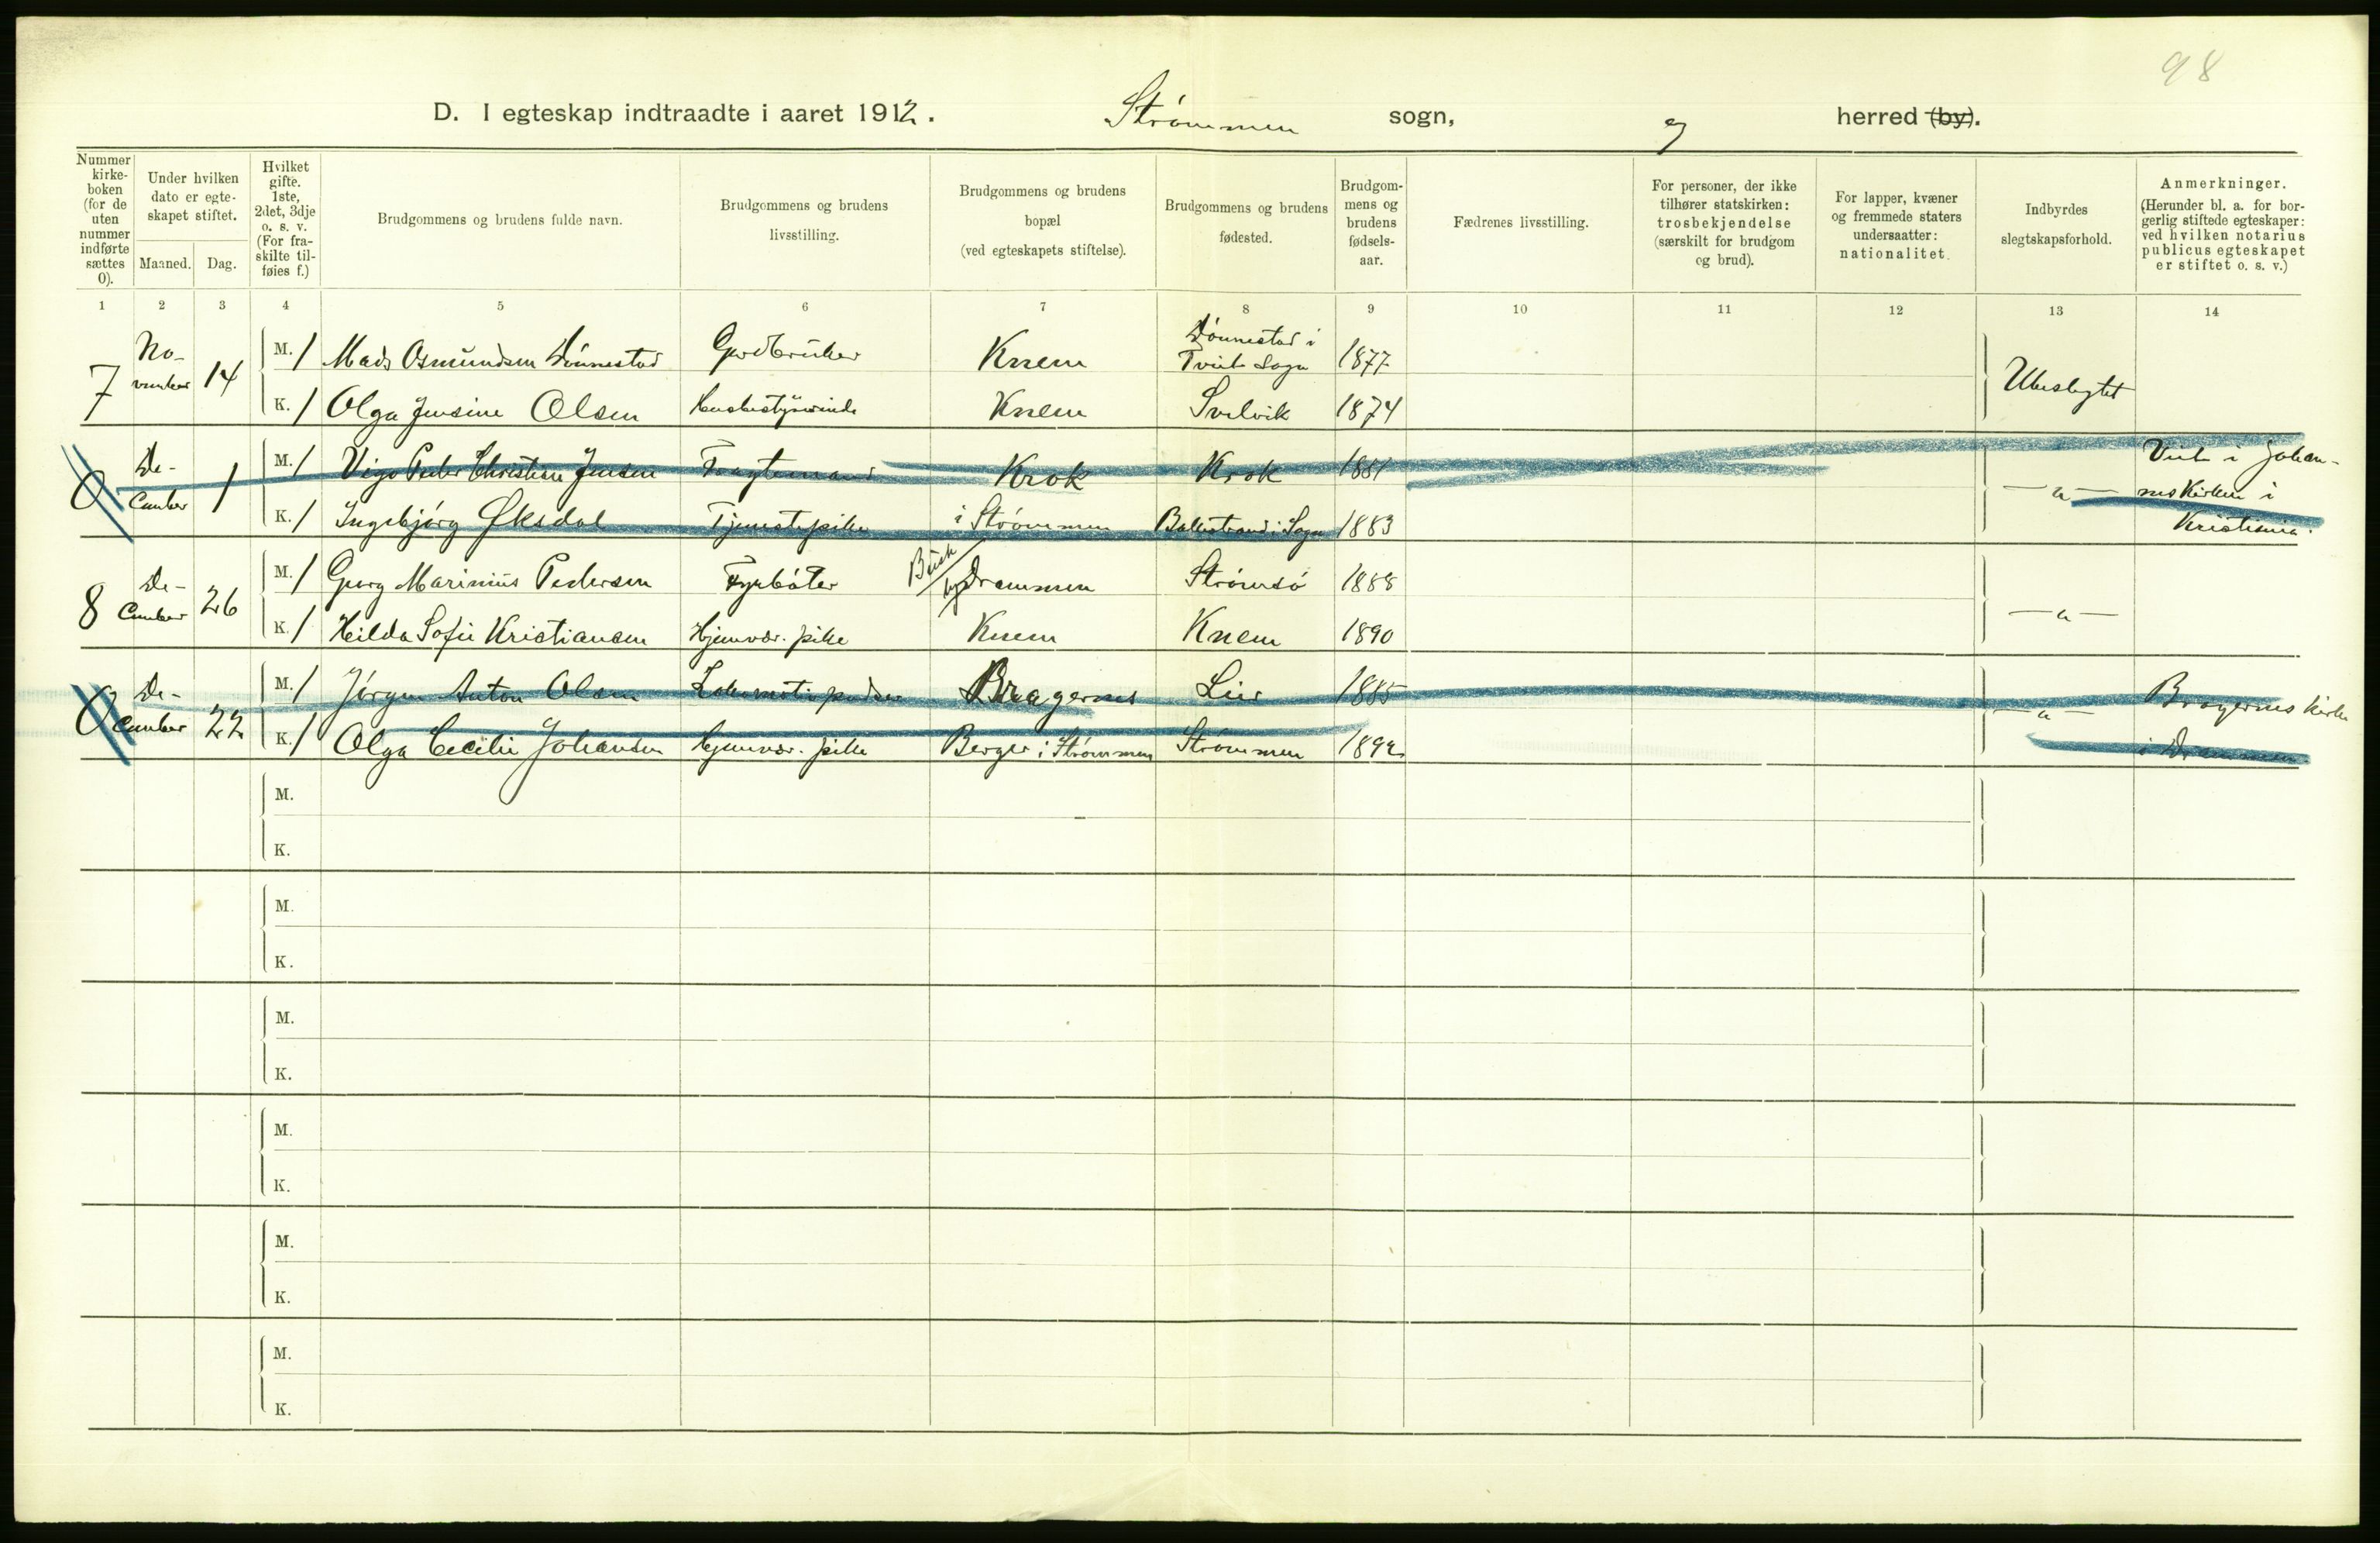 98
D. I egteskap indtraadte i aaret 1912. Strømmen sogn, og herred (by).
Nummer kirke-boken (for de uten nummer indførte sættes 0).
Under hvilken dato er egte-skapet stiftet.
Maaned. Dag.
Hvilket gifte. 1ste, 2det, 3dje o. s. v. (For fra-skilte til-føies f.)
Brudgommens og brudens fulde navn.
Brudgommens og brudens livsstilling.
Brudgommens og brudens bopæl (ved egteskapets stiftelse).
Brudgommens og brudens fødested.
Brudgom-mens og brudens fødsels-aar.
Fædrenes livsstilling.
For personer, der ikke tilhører statskirken: trosbekjendelse (særskilt for brudgom og brud).
For lapper, kvæner og fremmede staters undersaatter: nationalitet.
Indbyrdes slegtskapsforhold.
Anmerkninger. (Herunder bl. a. for bor-gerlig stiftede egteskaper: ved hvilken notarius publicus egteskapet er stiftet o. s. v.)
1 2 3 4 5 6 7 8 9 10 11 12 13 14
7 No-vember 14 M. 1 Mads Osmundsen Dønnestad Gardbruker Knem Dønnestad i Tveit Sogn 1877 Ubeslegtet
K. 1 Olga Jensine Olsen Husbestyrerinde Knem Svelvik 1874
0 De-cember 1 M. 1 Vigo Peder Christian Jensen Fragtemand Krok Krok 1881 — " — Viet i Johan-nes Kirken i Kristiania.
K. 1 Ingebjørg Øksdal Tjenestepike i Strømmen Balestrand i Sogn 1883
8 De-cember 26 M. 1 Georg Marinius Pedersen Fyrbøter Busk by Drammen Strømsø 1888 — " —
K. 1 Hilda Sofie Kristiansen Hjemvær. pike Knem Knem 1890
0 De-cember 22 M. 1 Jørgen Anton Olsen Lokomotivpudser Bragernes Lier 1885 — " — Bragernes Kirke i Drammen.
K. 1 Olga Cecilie Johansen Hjemvær. pike Berger i Strømmen Strømmen 1892
M.
K.
M.
K.
M.
K.
M.
K.
M.
K.
M.
K.